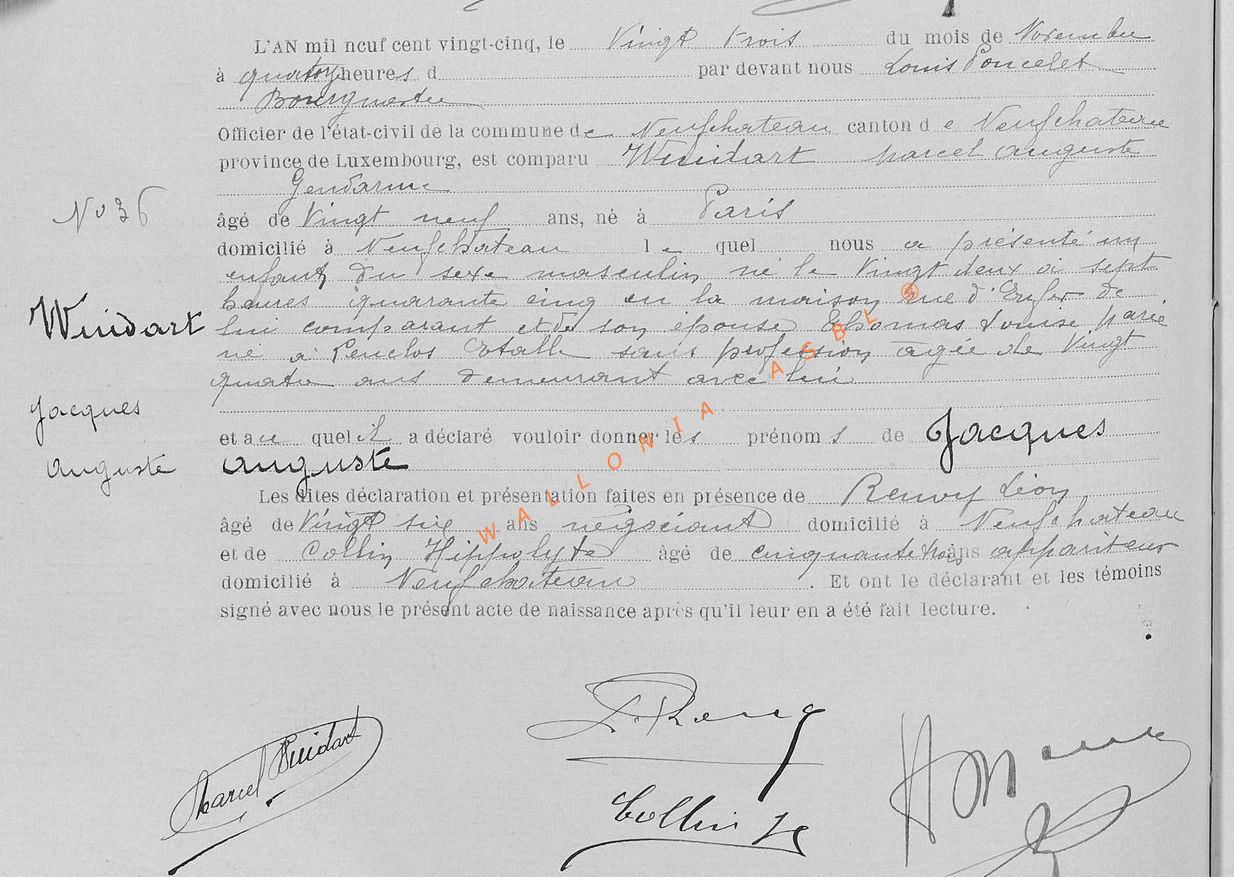 L'AN mil neuf cent vingt-cinq, le Vingt trois du mois de Novembre
à quatorze heures d par devant nous Louis Poncelet
Bourgmestre
Officier de l'état-civil de la commune de Neufchateau canton de Neufchateau
province de Luxembourg, est comparu Windart Marcel Auguste
Gendarme
No 36
âgé de Vingt neuf ans, né à Paris
domicilié à Neufchateau lequel nous a présenté un
enfant du sexe masculin né le Vingt deux à sept
heures quarante cinq en la maison rue d'Enfer de
Windart
lui comparant et de son épouse Thomas Louise Marie
né à Penclos Etalle sans profession agée de Vingt
quatre ans demeurant avec lui
Jacques
et auquel il a déclaré vouloir donner les prénoms de Jacques
Auguste
Auguste
Les dites déclaration et présentation faites en présence de Léon
âgé de Vingt six ans négociant domicilié à Neufchateau
et de Collin Hippolyte âgé de cinquante trois ans appariteur
domicilié à Neufchateau. Et ont le déclarant et les témoins
signé avec nous le présent acte de naissance après qu'il leur en a été fait lecture.
WALLONIA ASBL ®
Marcel Windart
Collin